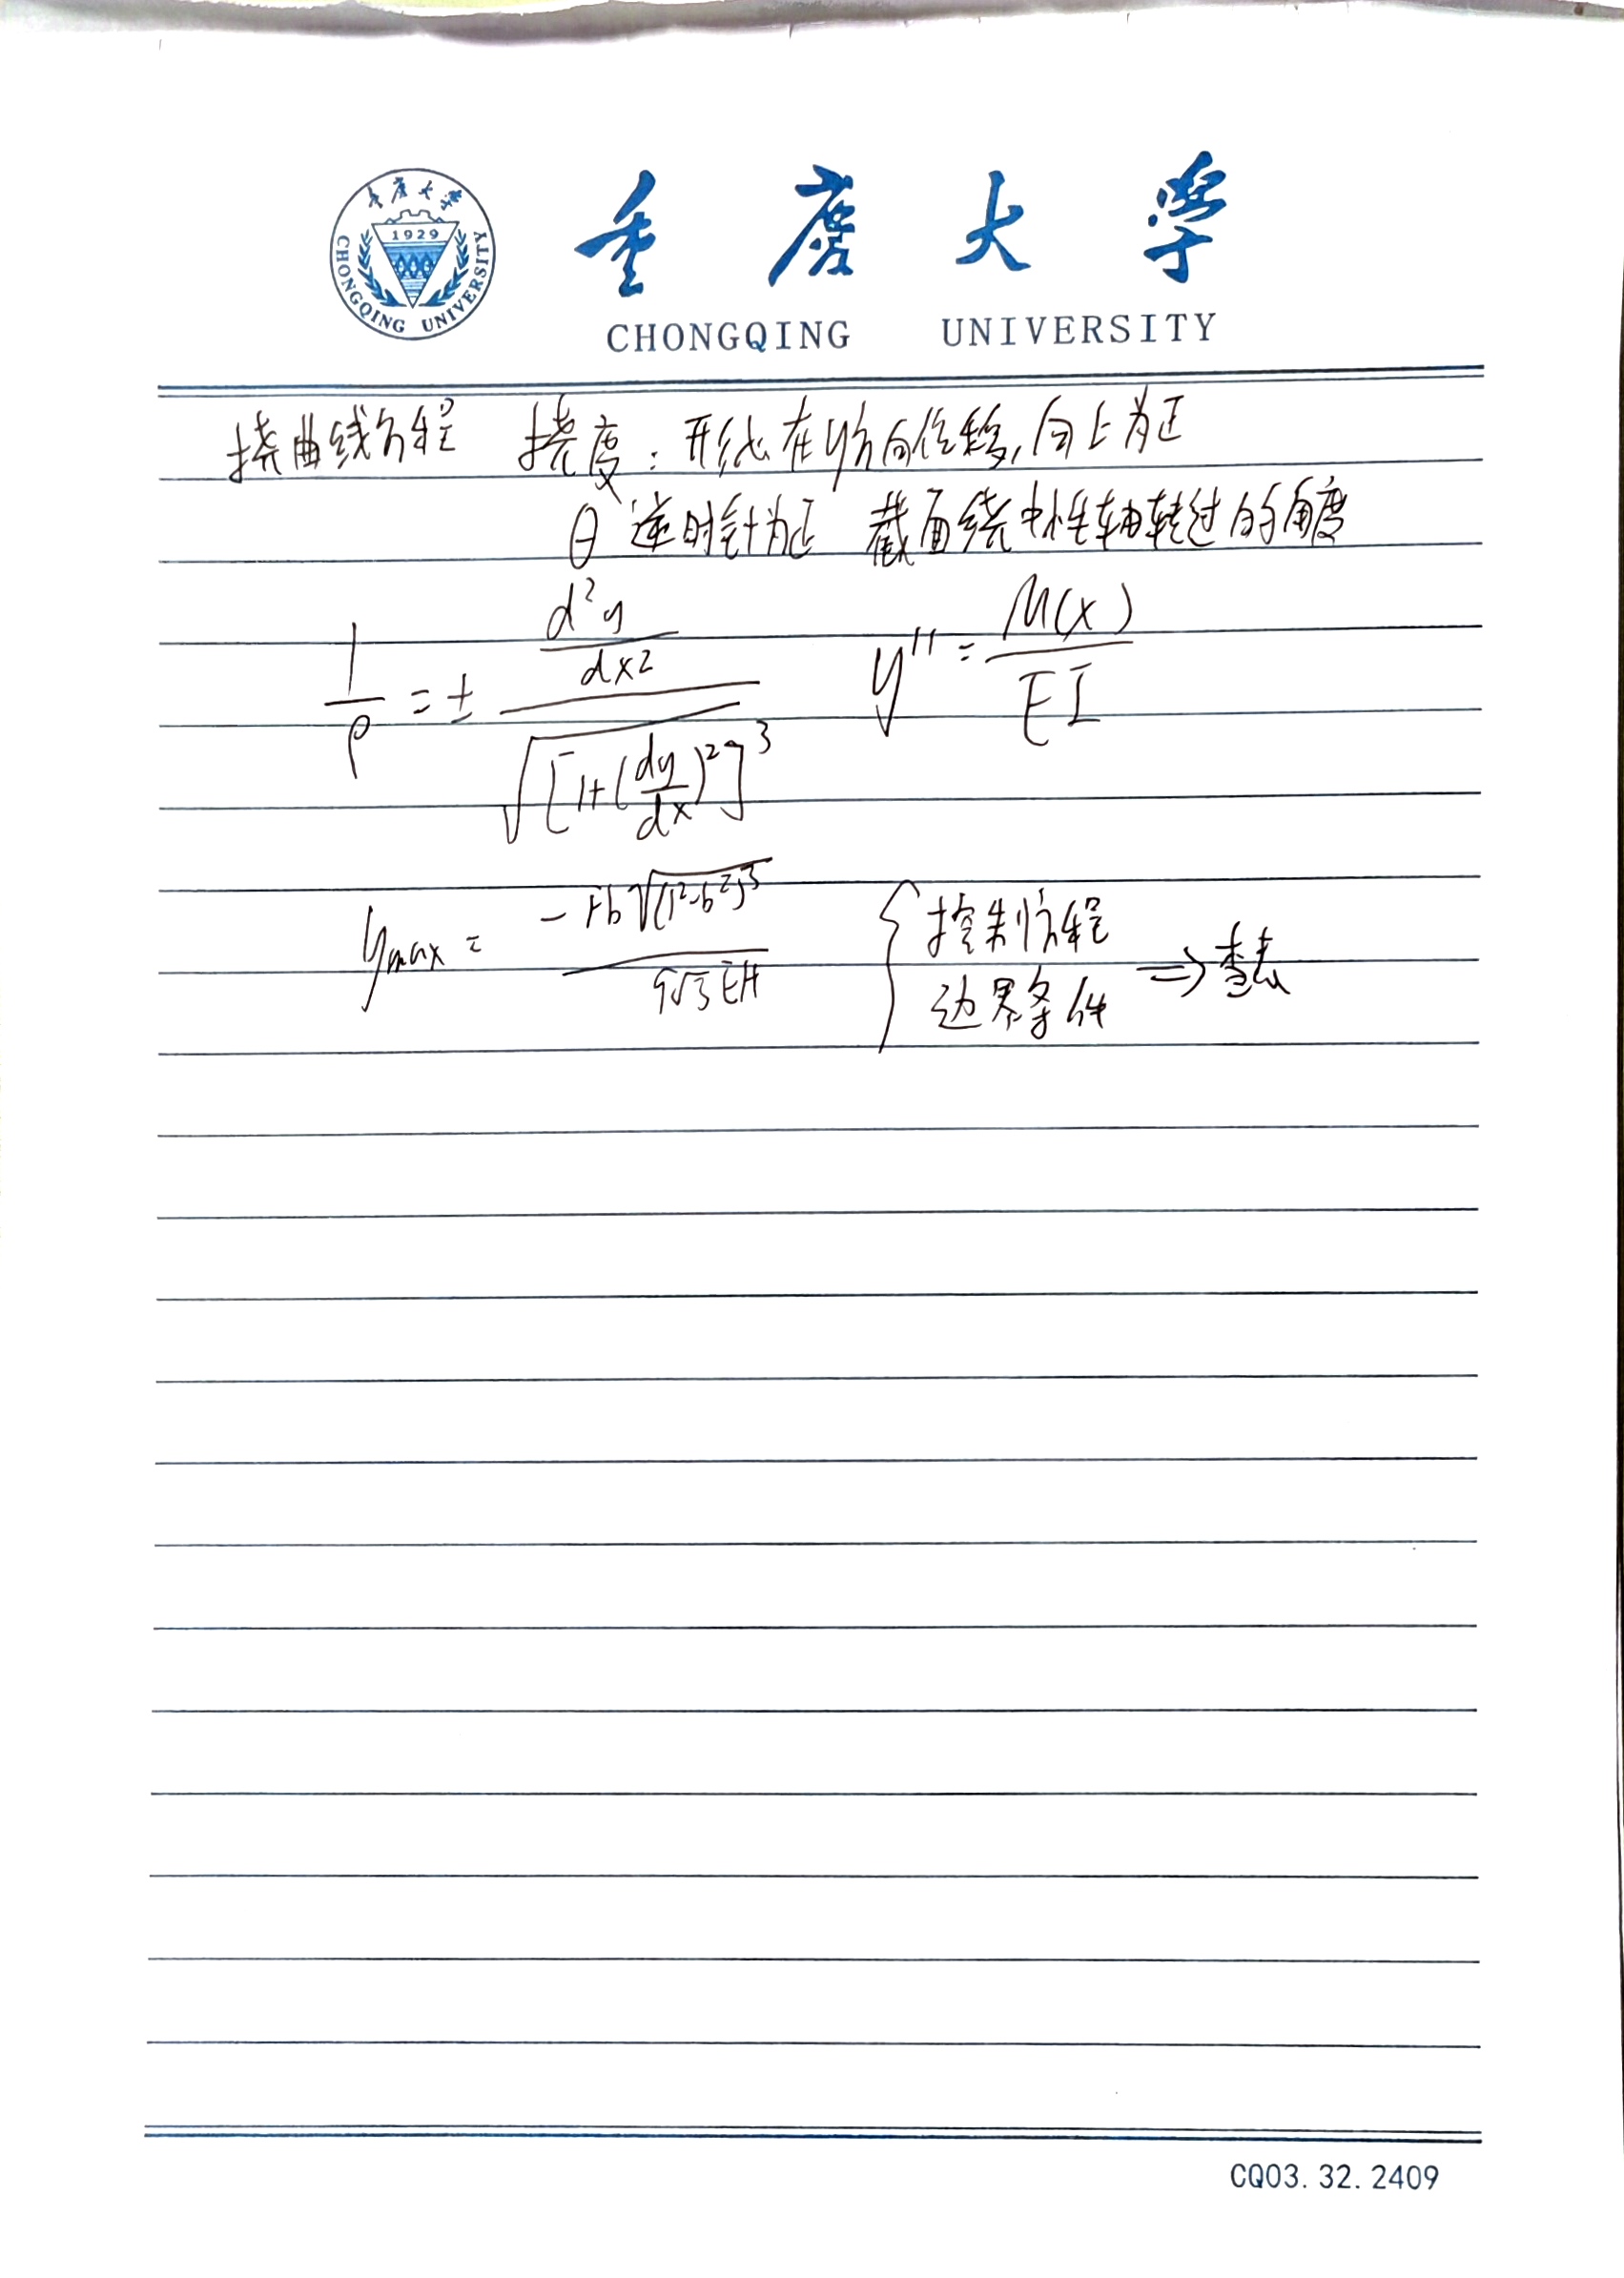 重庆大学
1929
CHONGQING UNIVERSITY
重庆大学
CHONGQING UNIVERSITY
挠曲线方程 挠度：形心在y方向位移，向上为正
θ 逆时针为正 截面绕中性轴转过的角度
1/ρ = ± (d²y/dx²) / √[1+(dy/dx)²]³ y'' = M(x)/EI
ymax = -Fb√(l²-b²)³ / 9√3 EIl { 控制方程 边界条件 ⇒ 查表
CQ03.32.2409